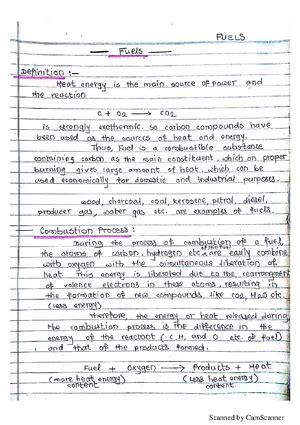 FUELS
Fuels
Definition :-
Heat energy is the main source of power and
the reaction
C + O2 → CO2
is strongly exothermic. so carbon compounds have
been used as the sources of heat and energy.
Thus, Fuel is a combustible substance
containing carbon as the main constituent, which on proper
burning gives large amount of heat, which can be
used economically for domestic and industrial purposes.
wood, charcoal, coal, kerosene, petrol, diesel,
producer gas, water gas etc. are examples of fuels.
Combustion Process :
During the process of combustion of a fuel,
the atoms of carbon, hydrogen etc. are easily combine
with oxygen with the simultaneous liberation of
heat. This energy is liberated due to the rearrangement
of valence electrons in these atoms, resulting in
the formation of new compounds like CO2, H2O etc.
(less energy)
Therefore, the energy or heat released during
the combustion process is the difference in the
energy of the reactant (C, H, and O etc of fuel)
and that of the products formed.
Fuel + Oxygen → Products + Heat
(more heat energy) (Less heat energy)
content content
Scanned by CamScanner